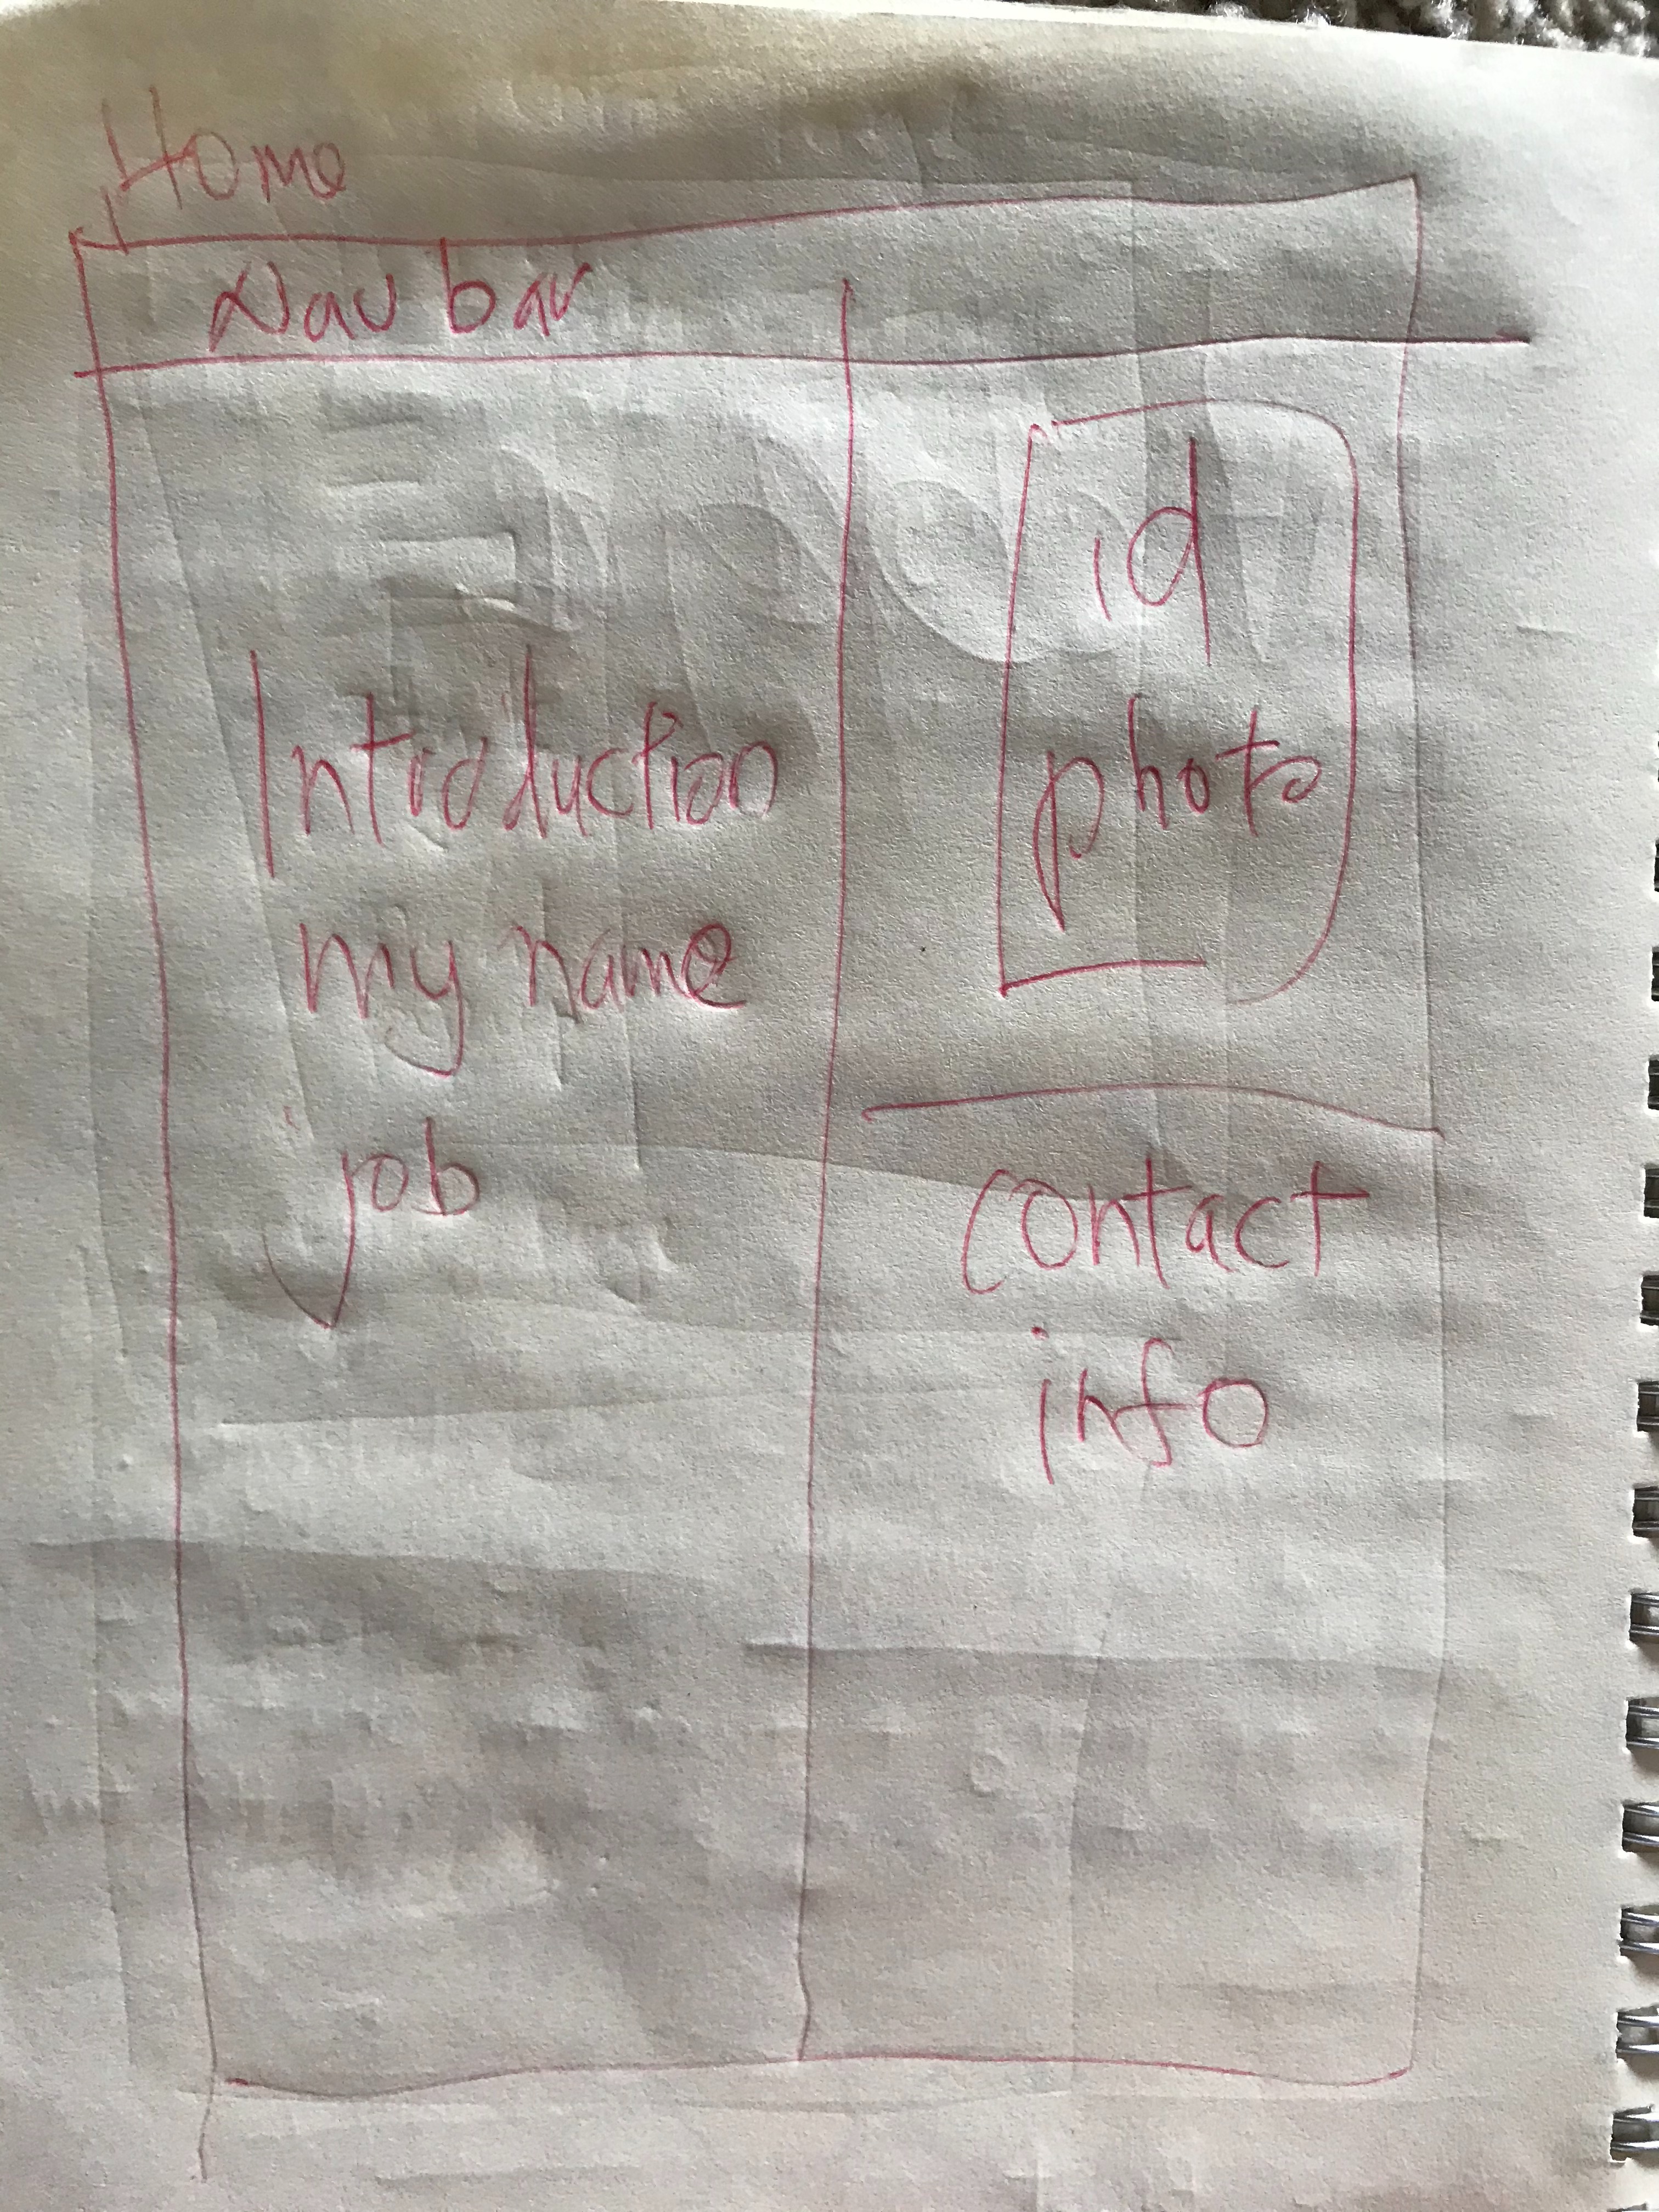 Home
Nav bar
Introduction
my name
job
id
photo
contact
info